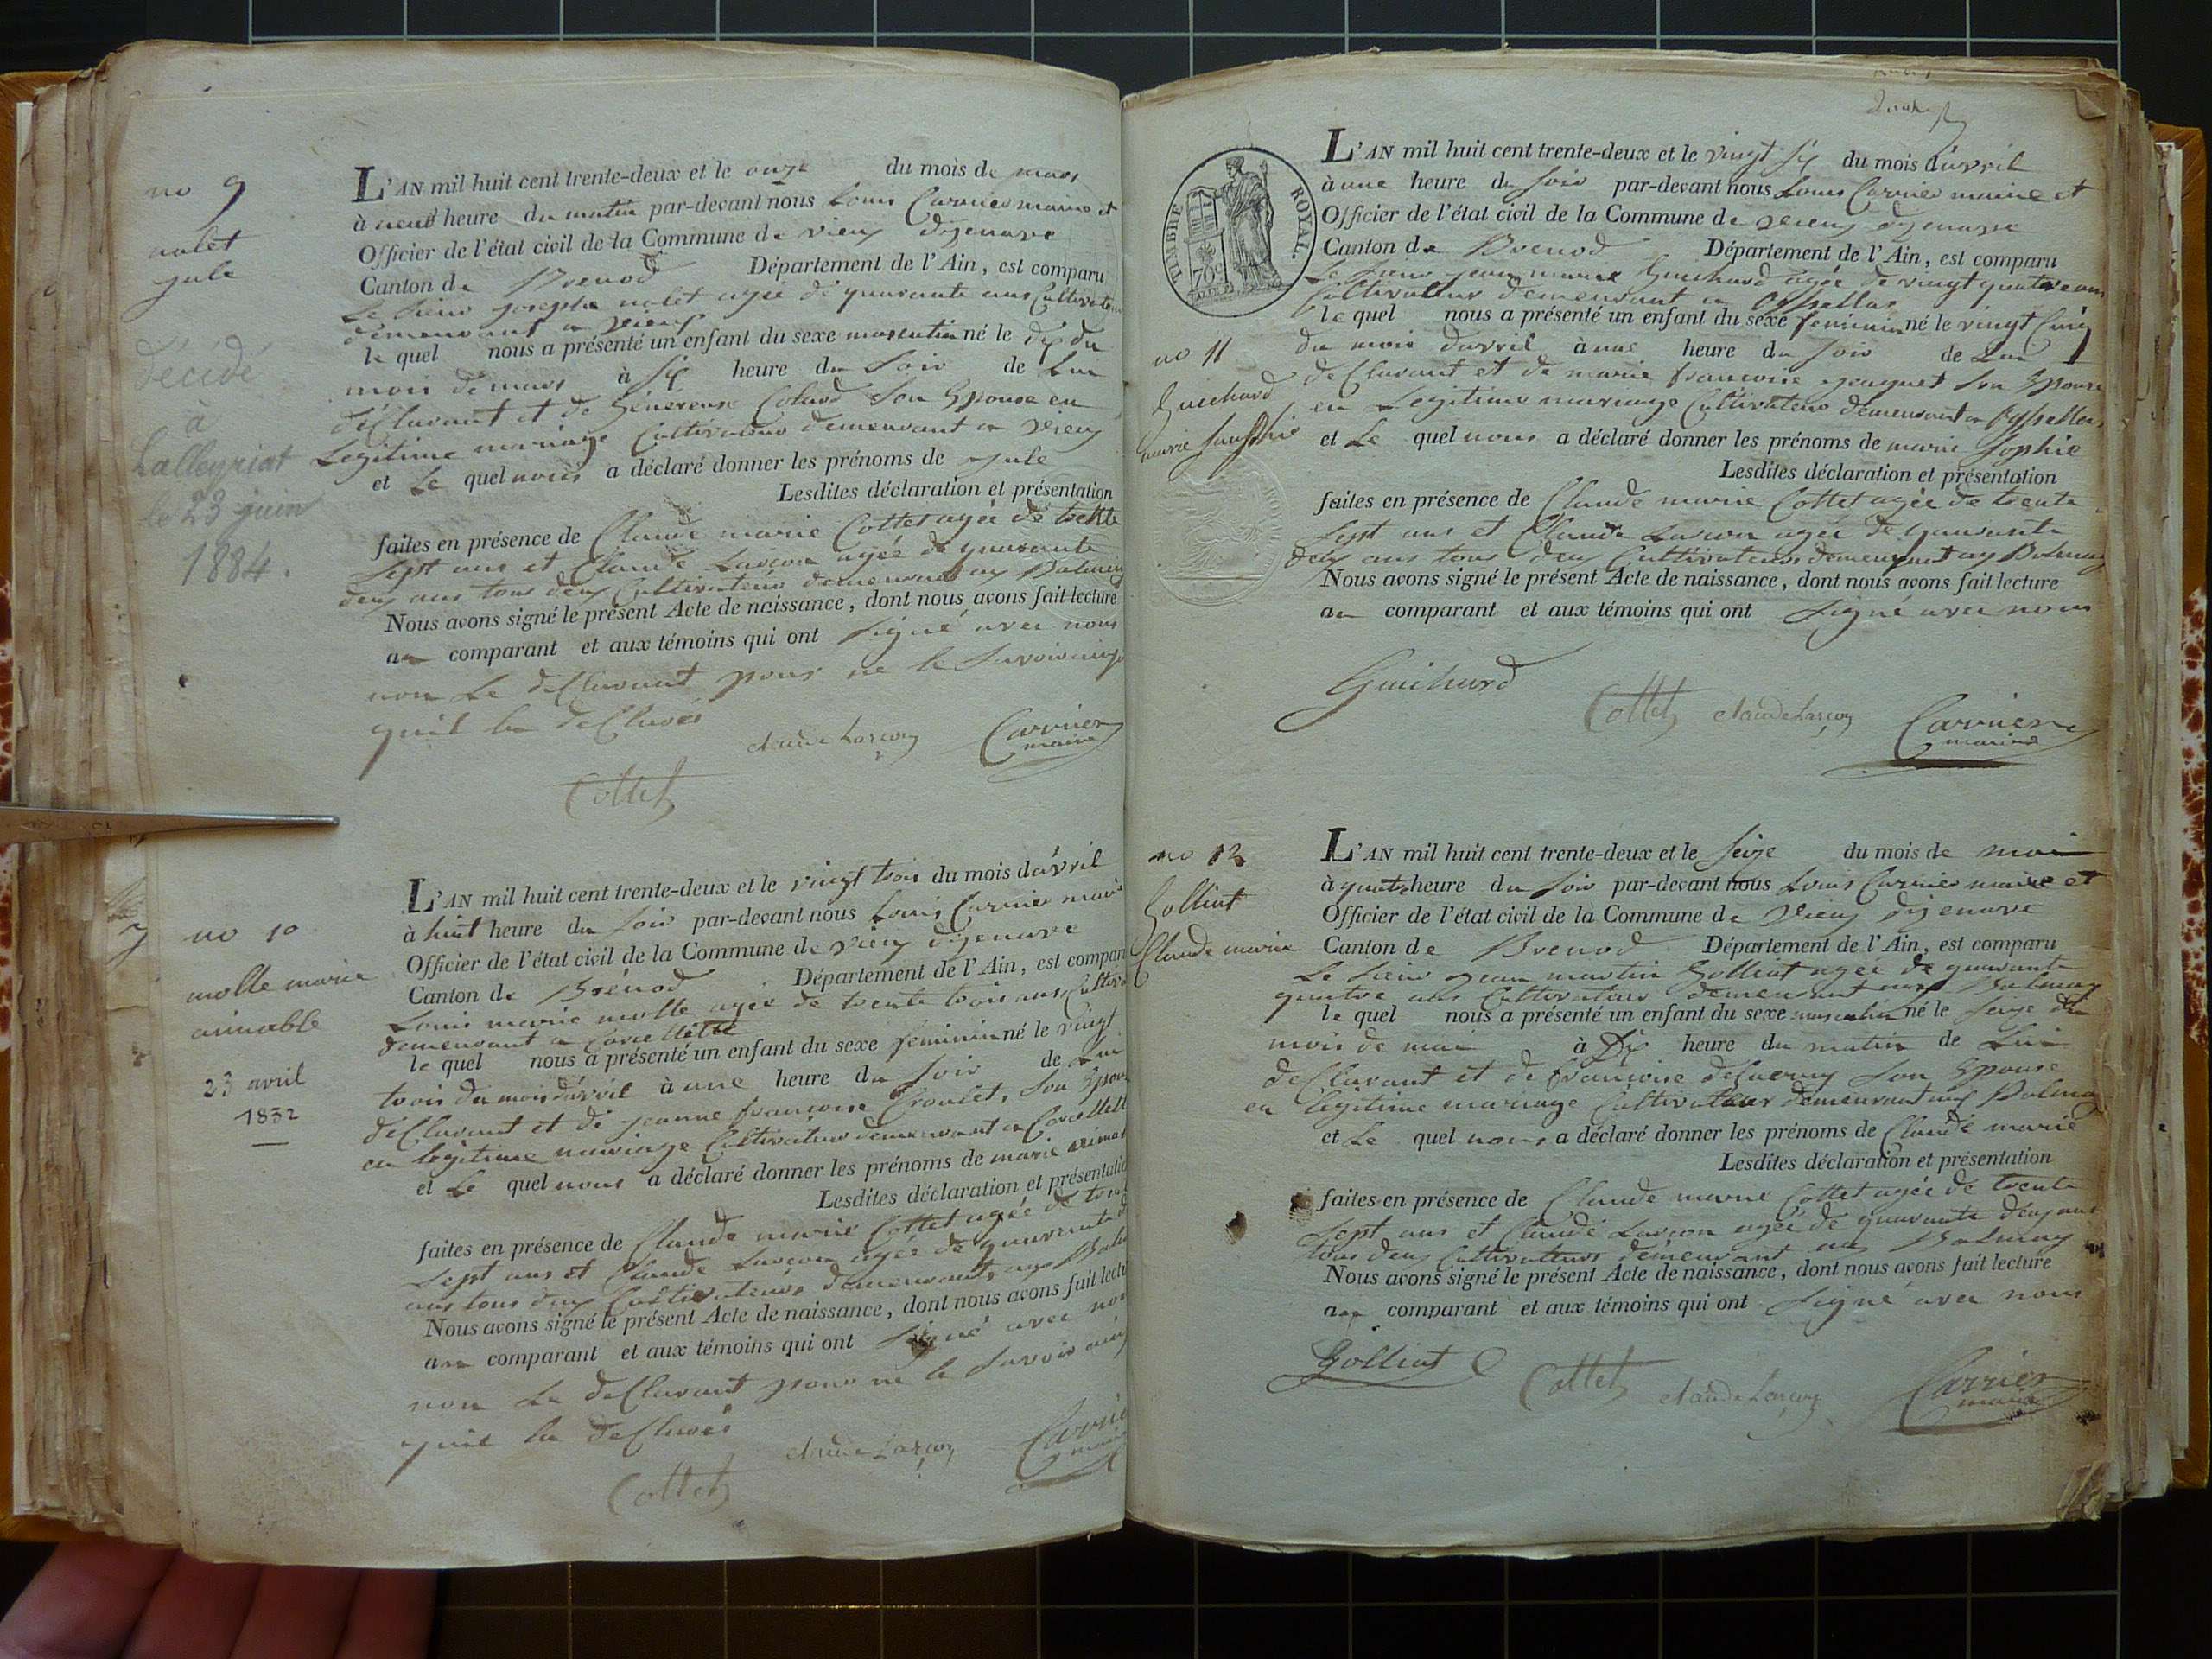 no 9
nolet
jule
Décédé
à
Lalleyriat
le 23 juin
1884.
L'AN mil huit cent trente-deux et le onze du mois de mars
à neuf heure du matin par-devant nous Louis Carrier maire et
Officier de l'état civil de la Commune de vieux dizenave
Canton de Brenod Département de l'Ain, est comparu
le sieur josephe nolet agée de quarante ans Cultivateur
demeurant a vieux
le quel nous a présenté un enfant du sexe masculin né le dix du
mois de mars à six heure du soir de Lui
déClarant et de Généreuse Coland son Epouse en
Legitime mariage Cultivateur demeurant a vieux
et Le quel nous a déclaré donner les prénoms de jule
Lesdites déclaration et présentation
faites en présence de Claude marie Cottet agée de trente
sept ans et Claude Larçon agée de quarante
deux ans tous deux Cultivateurs demeurant au Balmay
Nous avons signé le présent Acte de naissance, dont nous avons fait lecture
au comparant et aux témoins qui ont signé avec nous
non Le deClarant pour ne le savoir ainsi
quil la deClarés
claude Larçon Carrier
maire
Cottet
no 10
molle marie
aimable
23 avril
1832
L'AN mil huit cent trente-deux et le vingt trois du mois davril
à huit heure du soir par-devant nous Louis Carrier maire
Officier de l'état civil de la Commune de vieux dizenave
Canton de Brénod Département de l'Ain, est compar
Louis marie molle agée de trente trois ans Cultiva
demeurant a Corcellette
le quel nous a présenté un enfant du sexe feminin né le vingt
trois du mois davril à une heure du soir de Lui
deClarant et de jeanne francoise Croulet, son Epouse
en legitime mariage Cultivateur demeurant a Corcellette
et Le quel nous a déclaré donner les prénoms de marie aimab
Lesdites déclaration et présentatio
faites en présence de Claude marie Cottet agée de trente
sept ans et Claude Larçon agée de quarante d
ans tous deux Cultivateurs demeurant, au Balm
Nous avons signé le présent Acte de naissance, dont nous avons fait lectu
au comparant et aux témoins qui ont signé avec nou
non Le deClarant pour ne le savoir ainsi
quil la deClarés
claude Larçon Carrier
maire
Cottet
TIMBRE ROYAL.
70c
L'AN mil huit cent trente-deux et le vingt six du mois davril
à une heure du soir par-devant nous Louis Carrier maire et
Officier de l'état civil de la Commune de vieux dizenave
Canton de Brenod Département de l'Ain, est comparu
le sieur jean marie Guichard agée de vingt quatre ans
Cultivateur demeurant a Ossellas
le quel nous a présenté un enfant du sexe feminin né le vingt Cinq
du mois davril à une heure du soir de Lui
no 11
Guichard
marie sausphie
deClarant et de marie francoise jaquet son Epouse
en Legitime mariage Cultivateur demeurant a
et Le quel nous a déclaré donner les prénoms de marie sophie
Lesdites déclaration et présentation
faites en présence de Claude marie Cottet agée de trente
sept ans et Claude Larçon agée de quarante
deux ans tous deux Cultivateurs demeurant au Balmay
Nous avons signé le présent Acte de naissance, dont nous avons fait lecture
au comparant et aux témoins qui ont signé avec nous
Guichard
Cottet claude Larçon Carrier
maire
no 12
Golliat
Claude marie
L'AN mil huit cent trente-deux et le seize du mois de mai
à quatre heure du soir par-devant nous Louis Carrier maire et
Officier de l'état civil de la Commune de vieux dizenave
Canton de Brenod Département de l'Ain, est comparu
Le sieur jean martin Golliat agée de quarante
quatre ans Cultivateur demeurant au Balmay
le quel nous a présenté un enfant du sexe masculin né le seize du
mois de mai à Dix heure du matin de Lui
deClarant et de francoise son Epouse
en legitime mariage Cultivateur demeurant au Balmay
et Le quel nous a déclaré donner les prénoms de Claude marie
Lesdites déclaration et présentation
faites en présence de Claude marie Cottet agée de trente
sept ans et Claude Larçon agée de quarante deux ans
tous deux Cultivateurs demeurant au Balmay
Nous avons signé le présent Acte de naissance, dont nous avons fait lecture
au comparant et aux témoins qui ont signé avec nous
Golliat
Cottet claude Larçon Carrier
maire